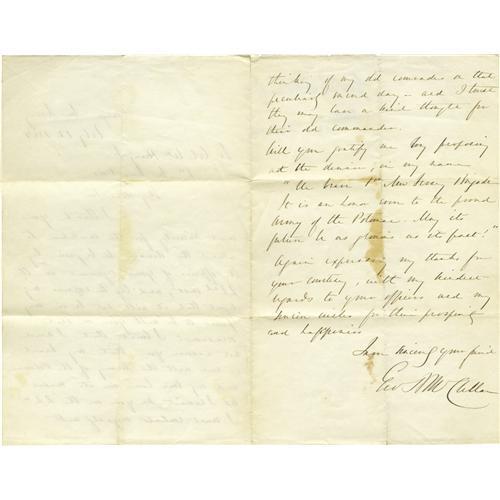 thinking of my old comrades on that
peculiarly sacred day - and I trust
they may have a kind thought for
their old commander.
Will you gratify me by proposing
at the dinner, in my name
"The brave 1st New Jersey Brigade
It is an honor even to the proud
Army of the Potomac. May its
future be as glorious as its past!"
Again expressing my thanks for
your courtesy, with my kindest
regards to your officers and my
sincere wishes for their prosperity
and happiness
I am sincerely your friend
Geo B McClellan